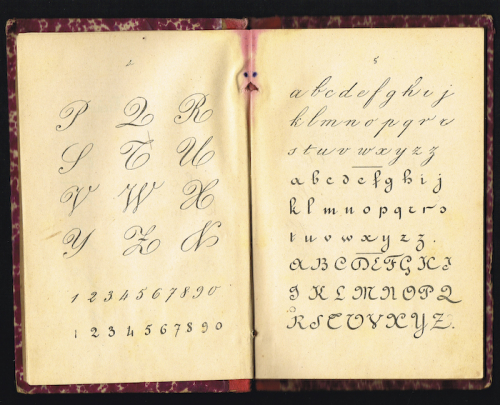 P Q R
S T U
V W X
Y Z N
1 2 3 4 5 6 7 8 9 0
1 2 3 4 5 6 7 8 9 0
5
a b c d e f g h i j
k l m n o p q r r
s t u v w x y z z
a b c d e f g h i j
k l m n o p q r s
t u v w x y z z.
A B C D E F G H I
J K L M N O P Q
R S T U V X Y Z.